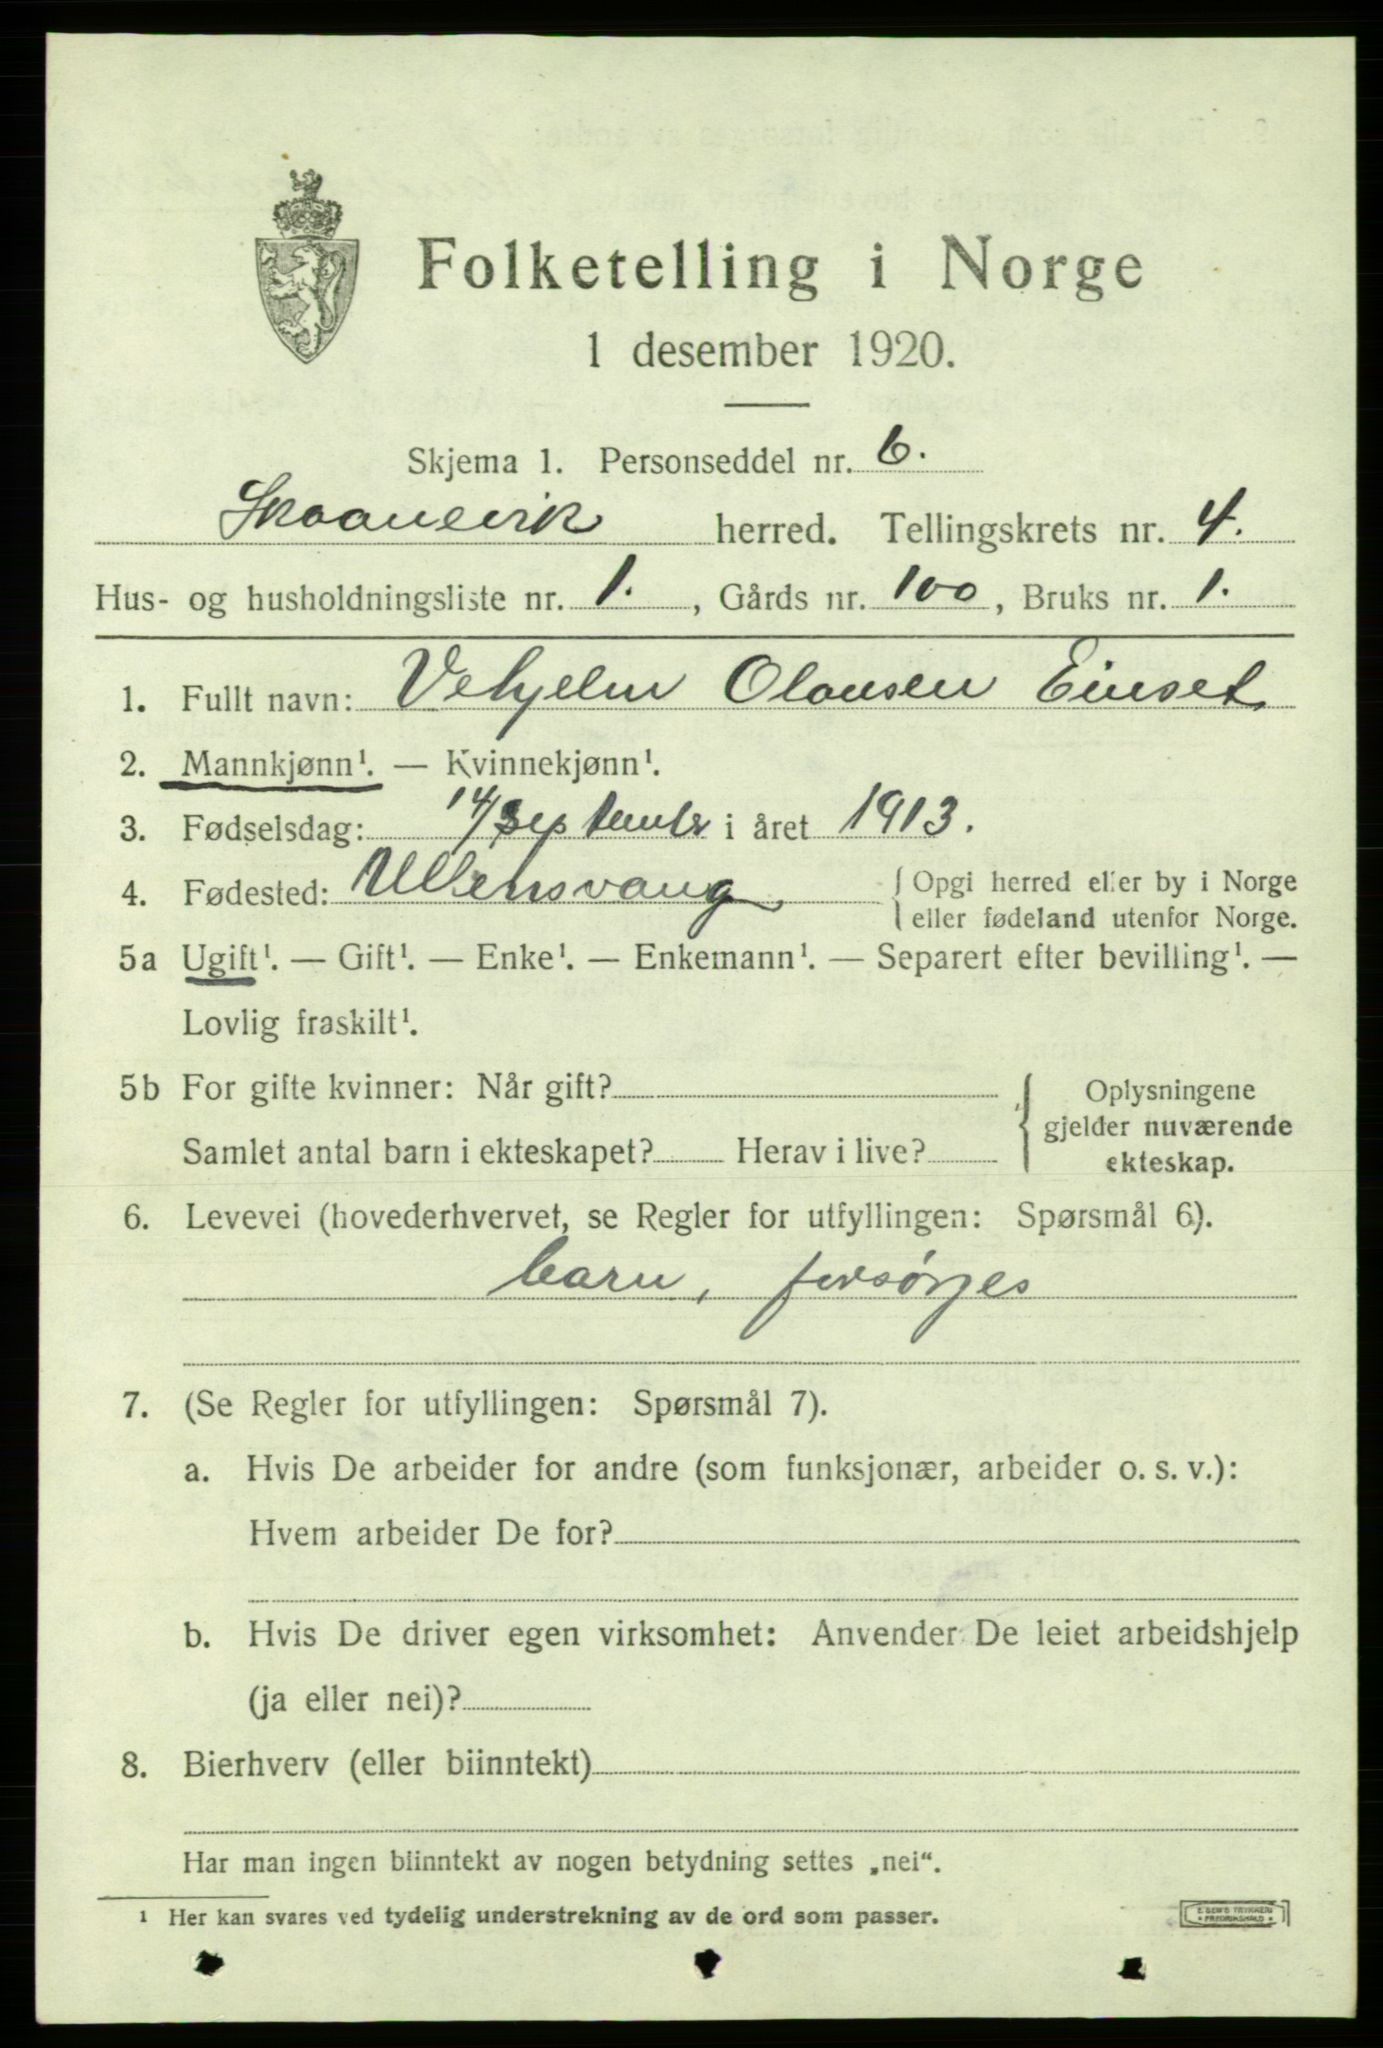 Folketelling i Norge
1 desember 1920.
Skjema 1. Personseddel nr. 6.
Skaanevik herred. Tellingskrets nr. 4.
Hus- og husholdningsliste nr. 1. , Gårds nr. 100 , Bruks nr. 1.
1. Fullt navn: Vehjelm Olausen Einset
2. Mannkjønn¹. — Kvinnekjønn¹.
3. Fødselsdag: 14/September i året 1913.
4. Fødested: Ullensvang { Opgi herred eller by i Norge
eller fødeland utenfor Norge.
5a Ugift¹. — Gift¹. — Enke¹. — Enkemann¹. — Separert efter bevilling¹. —
Lovlig fraskilt¹.
5b For gifte kvinner: Når gift? { Oplysningene
gjelder nuværende
Samlet antal barn i ekteskapet? Herav i live?
ekteskap.
6. Levevei (hovederhvervet, se Regler for utfyllingen: Spørsmål 6).
barn, forsørges
7. (Se Regler for utfyllingen: Spørsmål 7).
a. Hvis De arbeider for andre (som funksjonær, arbeider o. s. v.):
Hvem arbeider De for?
b. Hvis De driver egen virksomhet: Anvender De leiet arbeidshjelp
(ja eller nei)?
8. Bierhverv (eller biinntekt)
Har man ingen biinntekt av nogen betydning settes „nei“.
¹ Her kan svares ved tydelig understrekning av de ord som passer.